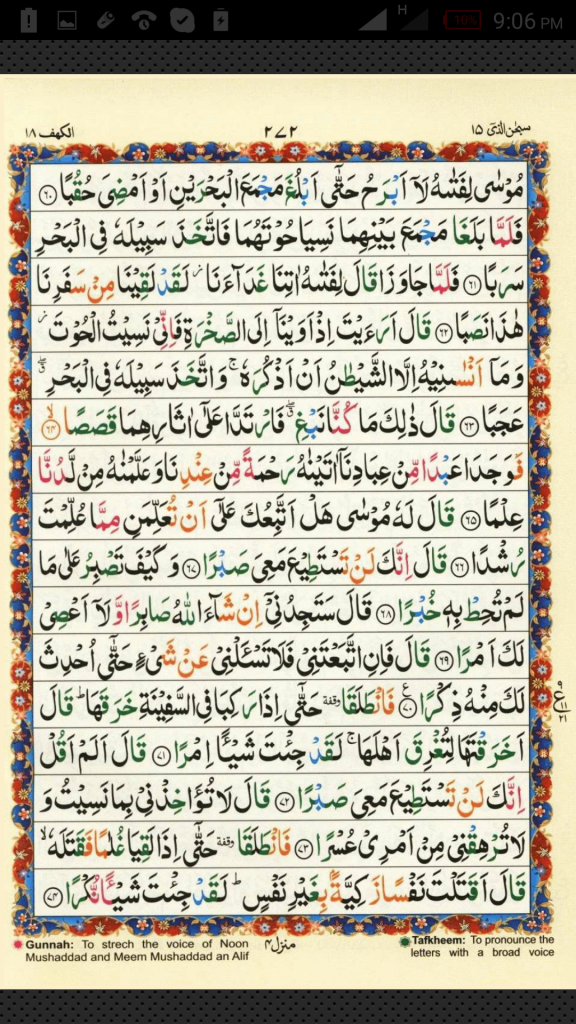 H 10% 9:06 PM
سبحٰن الذیٓ ١٥ ٢٧٢ الكهف ١٨
مُوْسٰى لِفَتٰىهُ لَآ اَبْرَحُ حَتّٰۤى اَبْلُغَ مَجْمَعَ الْبَحْرَيْنِ اَوْ اَمْضِىَ حُقُبًا ﴿٦٠﴾
فَلَمَّا بَلَغَا مَجْمَعَ بَيْنِهِمَا نَسِيَا حُوْتَهُمَا فَاتَّخَذَ سَبِيْلَهٗ فِى الْبَحْرِ
سَرَبًا ﴿٦١﴾ فَلَمَّا جَاوَزَا قَالَ لِفَتٰىهُ اٰتِنَا غَدَآءَنَا ز لَقَدْ لَقِيْنَا مِنْ سَفَرِنَا
هٰذَا نَصَبًا ﴿٦٢﴾ قَالَ اَرَءَيْتَ اِذْ اَوَيْنَاۤ اِلَى الصَّخْرَةِ فَاِنِّىْ نَسِيْتُ الْحُوْتَ ز
وَمَاۤ اَنْسٰنِيْهُ اِلَّا الشَّيْطٰنُ اَنْ اَذْكُرَهٗ ۚ وَاتَّخَذَ سَبِيْلَهٗ فِى الْبَحْرِ ۖ
عَجَبًا ﴿٦٣﴾ قَالَ ذٰلِكَ مَا كُنَّا نَبْغِ ۖ فَارْتَدَّا عَلٰۤى اٰثَارِهِمَا قَصَصًا ﴿٦٤﴾ ۙ
فَوَجَدَا عَبْدًا مِّنْ عِبَادِنَاۤ اٰتَيْنٰهُ رَحْمَةً مِّنْ عِنْدِنَا وَعَلَّمْنٰهُ مِنْ لَّدُنَّا
عِلْمًا ﴿٦٥﴾ قَالَ لَهٗ مُوْسٰى هَلْ اَتَّبِعُكَ عَلٰٓى اَنْ تُعَلِّمَنِ مِمَّا عُلِّمْتَ
رُشْدًا ﴿٦٦﴾ قَالَ اِنَّكَ لَنْ تَسْتَطِيْعَ مَعِىَ صَبْرًا ﴿٦٧﴾ وَكَيْفَ تَصْبِرُ عَلٰى مَا
لَمْ تُحِطْ بِهٖ خُبْرًا ﴿٦٨﴾ قَالَ سَتَجِدُنِىْۤ اِنْ شَآءَ اللّٰهُ صَابِرًا وَّلَاۤ اَعْصِىْ
لَكَ اَمْرًا ﴿٦٩﴾ قَالَ فَاِنِ اتَّبَعْتَنِىْ فَلَا تَسْـَٔلْنِىْ عَنْ شَىْءٍ حَتّٰۤى اُحْدِثَ
لَكَ مِنْهُ ذِكْرًا ﴿٧٠﴾ ع فَانْطَلَقَا وقفة حَتّٰۤى اِذَا رَكِبَا فِى السَّفِيْنَةِ خَرَقَهَا ؕ قَالَ
اَخَرَقْتَهَا لِتُغْرِقَ اَهْلَهَا ۚ لَقَدْ جِئْتَ شَيْـًٔا اِمْرًا ﴿٧١﴾ قَالَ اَلَمْ اَقُلْ
اِنَّكَ لَنْ تَسْتَطِيْعَ مَعِىَ صَبْرًا ﴿٧٢﴾ قَالَ لَا تُؤَاخِذْنِىْ بِمَا نَسِيْتُ وَ
لَا تُرْهِقْنِىْ مِنْ اَمْرِىْ عُسْرًا ﴿٧٣﴾ فَانْطَلَقَا وقفة حَتّٰۤى اِذَا لَقِيَا غُلٰمًا فَقَتَلَهٗ ۙ
قَالَ اَقَتَلْتَ نَفْسًا زَكِيَّةًۢ بِغَيْرِ نَفْسٍ ؕ لَقَدْ جِئْتَ شَيْـًٔا نُّكْرًا ﴿٧٤﴾
منزل ٤
Gunnah: To strech the voice of Noon
Mushaddad and Meem Mushaddad an Alif
Tafkheem: To pronounce the
letters with a broad voice